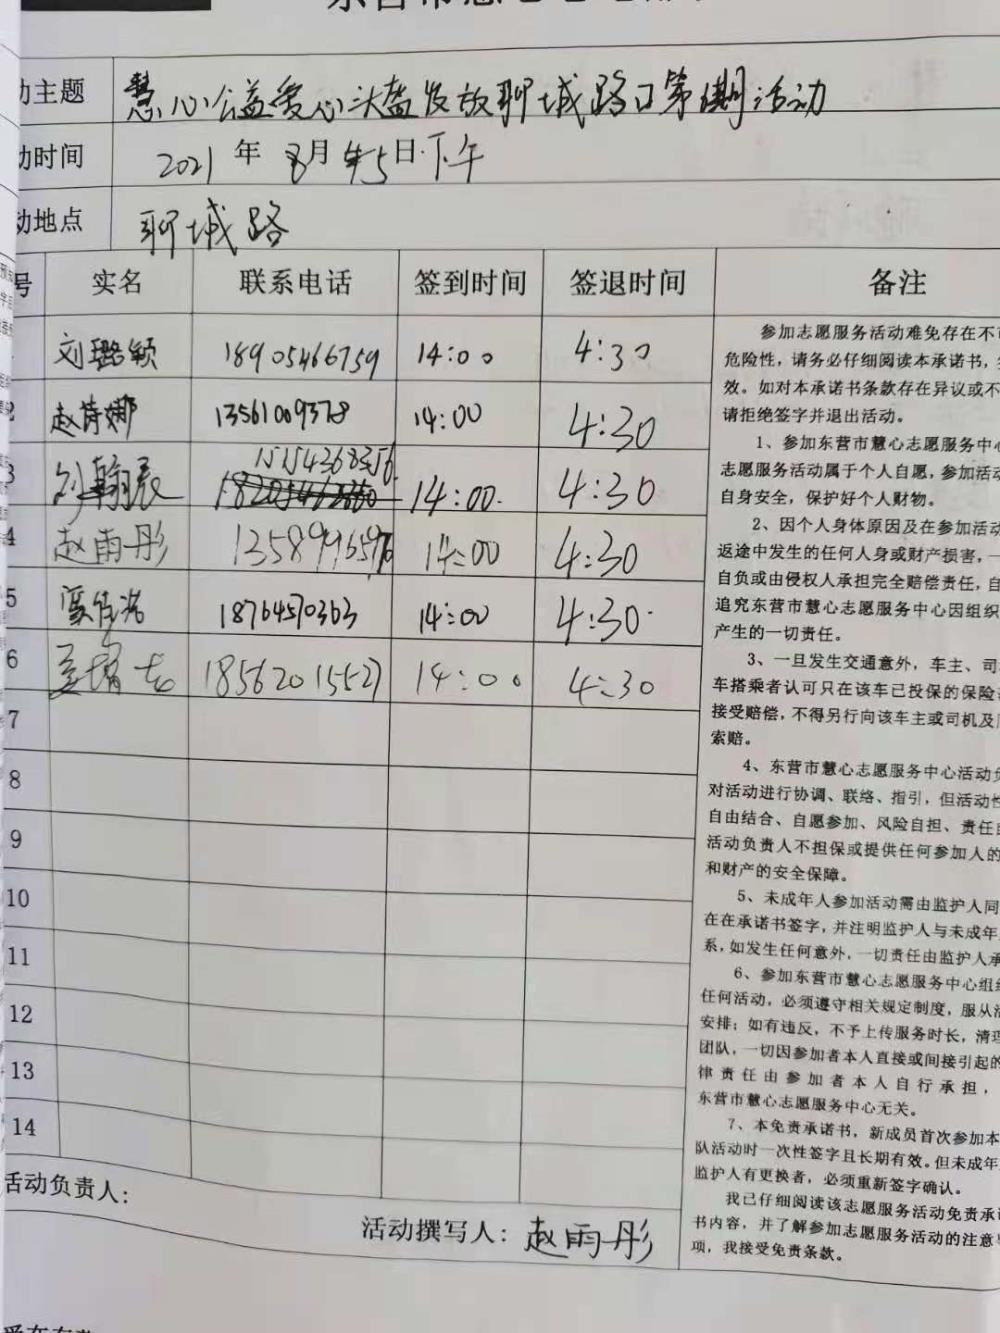 动主题 慧心公益爱心头盔发放聊城路口第期活动
动时间 2021年8月5日下午
动地点 聊城路
号 实名 联系电话 签到时间 签退时间 备注
刘璐颖 18905466759 14:00 4:30
赵倩娜 13561009378 14:00 4:30
3 刘翰辰 15154368356 14:00 4:30
4 赵雨彤 13589996597 14:00 4:30
5 18764570363 14:00 4:30
6 18562015527 14:00 4:30
7
8
9
10
11
12
13
14
参加志愿服务活动难免存在不可
危险性，请务必仔细阅读本承诺书，
效。如对本承诺书条款存在异议或不
请拒绝签字并退出活动。
1、参加东营市慧心志愿服务中心
志愿服务活动属于个人自愿，参加活动
自身安全，保护好个人财物。
2、因个人身体原因及在参加活动
返途中发生的任何人身或财产损害，一
自负或由侵权人承担完全赔偿责任，自
追究东营市慧心志愿服务中心因组织
产生的一切责任。
3、一旦发生交通意外，车主、司
车搭乘者认可只在该车已投保的保险
接受赔偿，不得另行向该车主或司机及
索赔。
4、东营市慧心志愿服务中心活动负
对活动进行协调、联络、指引，但活动性
自由结合、自愿参加、风险自担、责任自
活动负责人不担保或提供任何参加人的
和财产的安全保障。
5、未成年人参加活动需由监护人同
在在承诺书签字，并注明监护人与未成年
系，如发生任何意外，一切责任由监护人承
6、参加东营市慧心志愿服务中心组织
任何活动，必须遵守相关规定制度，服从活
安排；如有违反，不予上传服务时长，清理
团队，一切因参加者本人直接或间接引起的
律责任由参加者本人自行承担，
东营市慧心志愿服务中心无关。
7、本免责承诺书，新成员首次参加本
队活动时一次性签字且长期有效。但未成年
监护人有更换者，必须重新签字确认。
我已仔细阅读该志愿服务活动免责承诺
书内容，并了解参加志愿服务活动的注意事
项，我接受免责条款。
活动负责人：
活动撰写人：赵雨彤